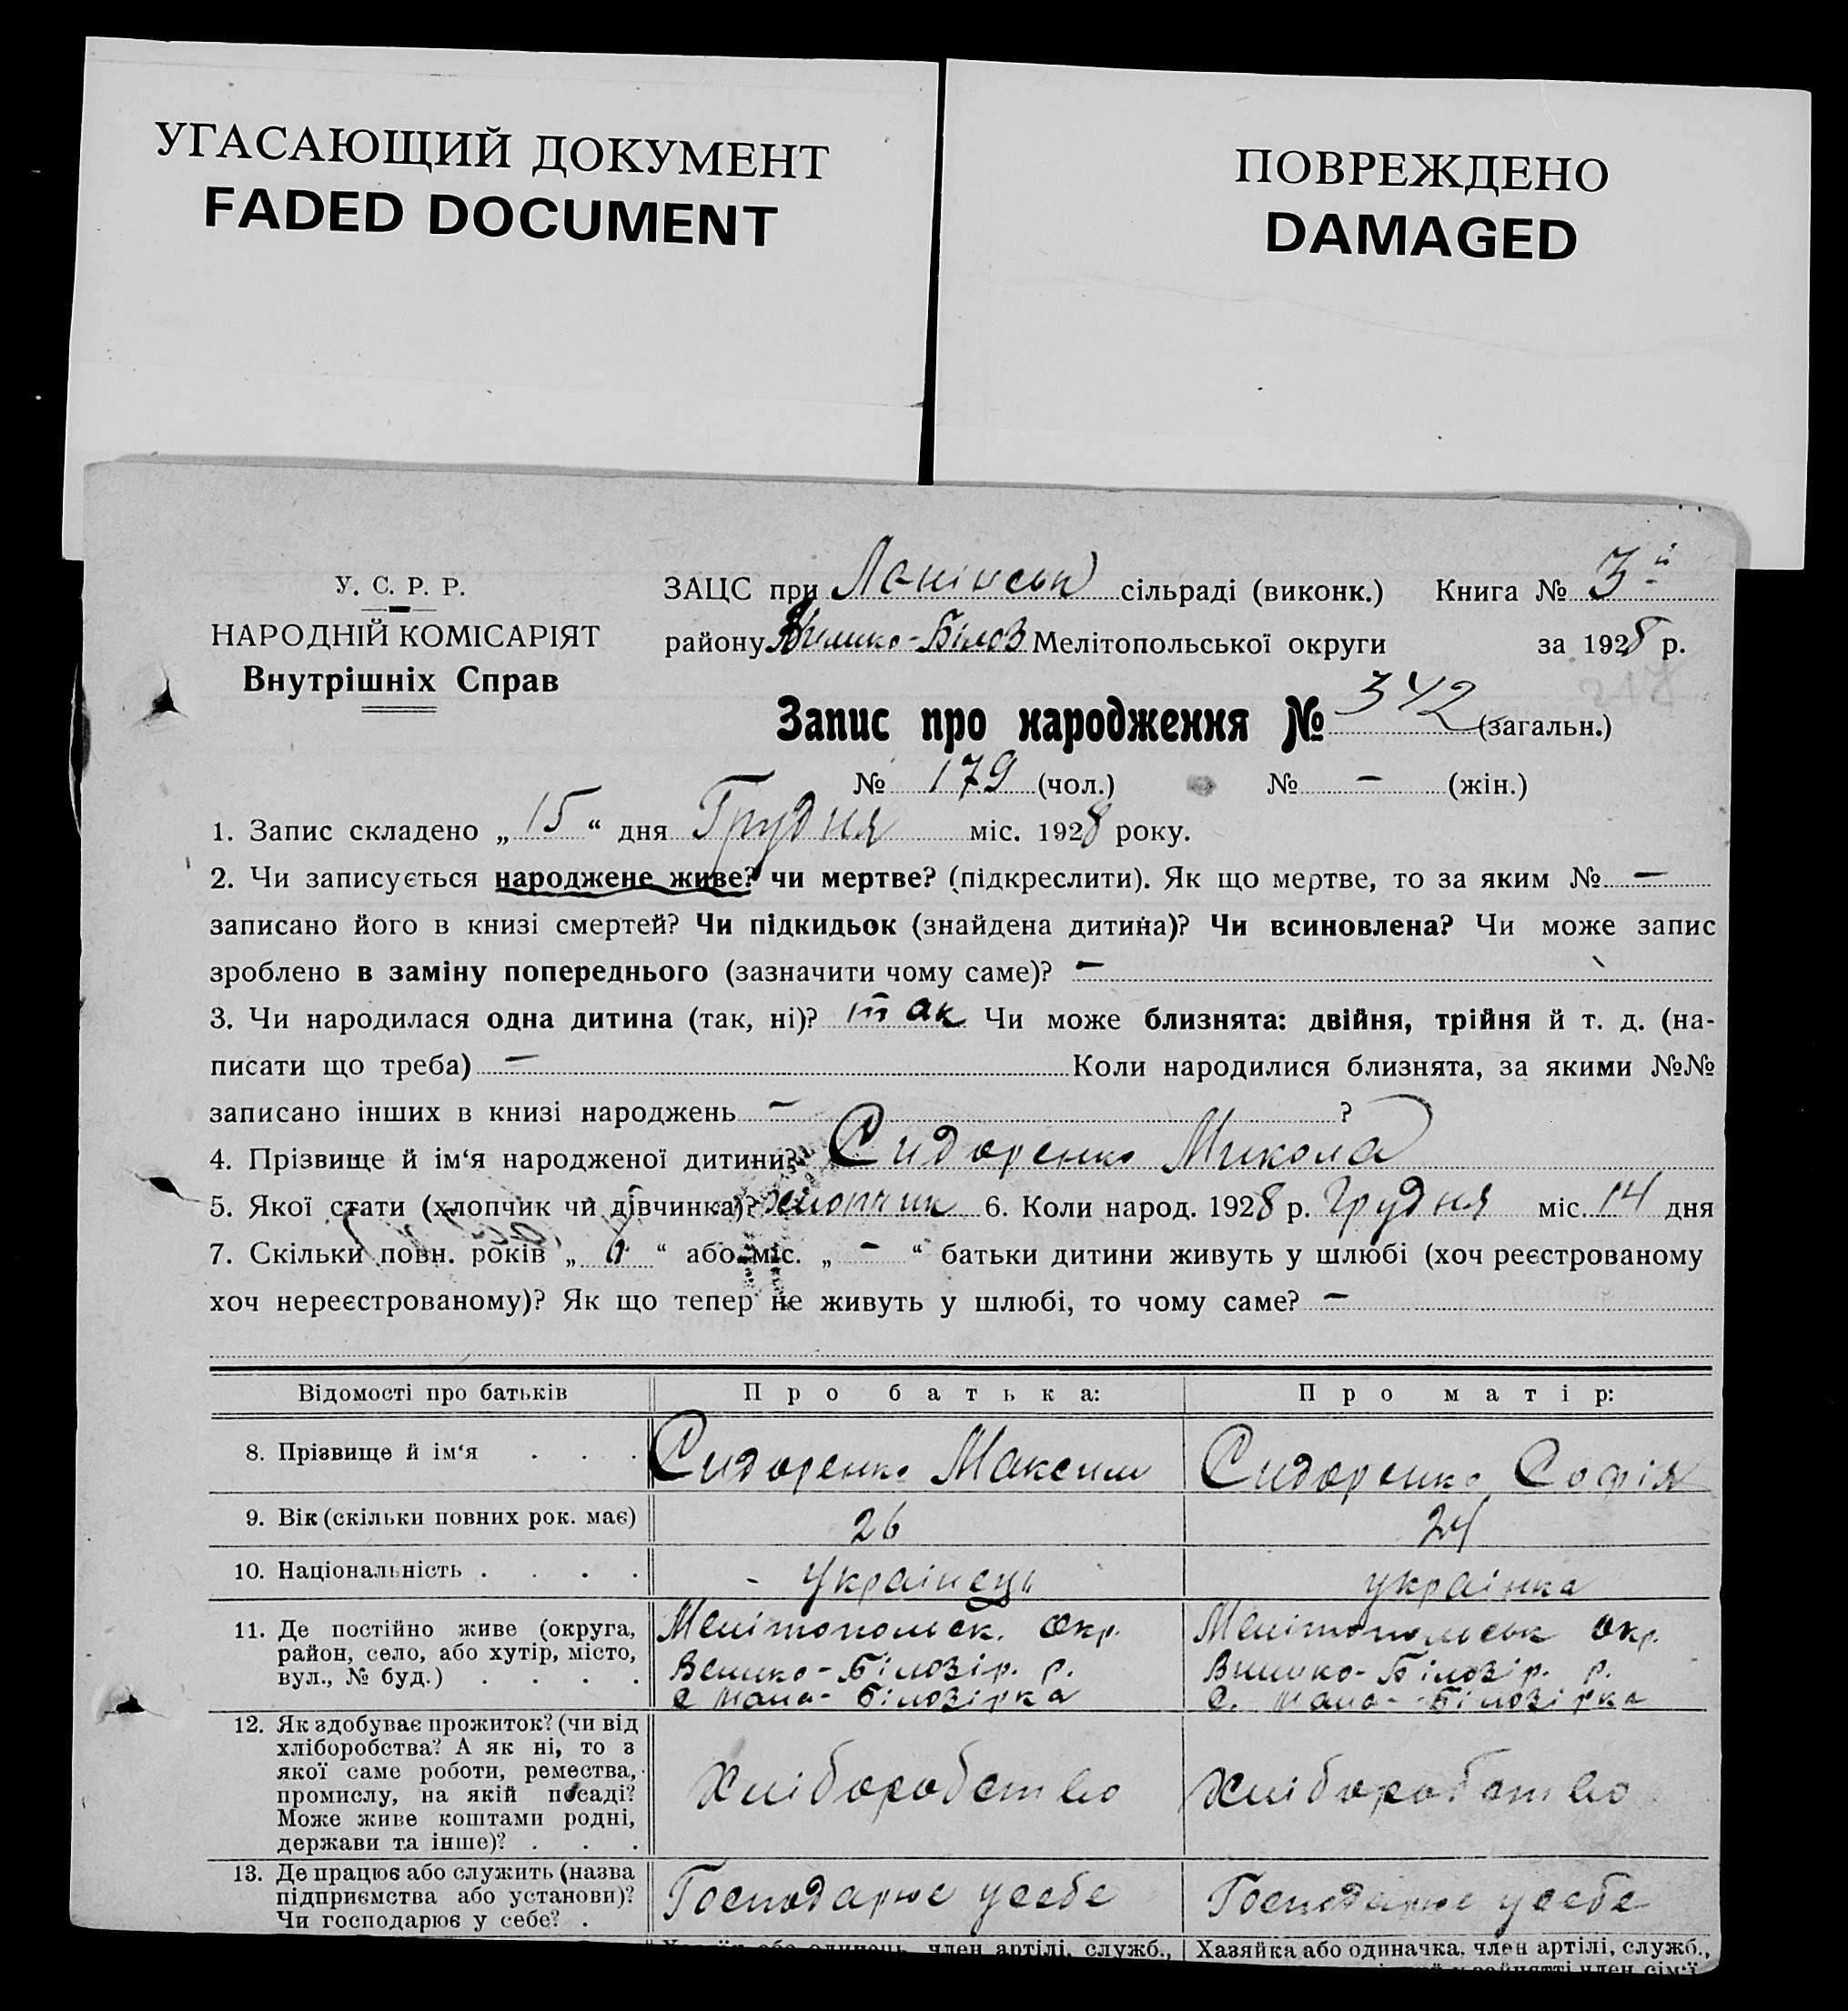 УГАСАЮЩИЙ ДОКУМЕНТ
FADED DOCUMENT
ПОВРЕЖДЕНО
DAMAGED
У. С. Р. Р.
НАРОДНІЙ КОМІСАРІЯТ
Внутрішніх Справ
ЗАЦС при сільраді (виконк.) Книга № 3й
району Велико-Білоз Мелітопольської округи за 1928 р.
Запис про народження № 342 (загальн.)
№ 179 (чол.) № – (жін.)
1. Запис складено „15“ дня Грудня міс. 1928 року.
2. Чи записується народжене живе? чи мертве? (підкреслити). Як що мертве, то за яким № –
записано його в книзі смертей? Чи підкидьок (знайдена дитина)? Чи всиновлена? Чи може запис
зроблено в заміну попереднього (зазначити чому саме)? –
3. Чи народилася одна дитина (так, ні)? так Чи може близнята: двійня, трійня й т. д. (на-
писати що треба) – Коли народилися близнята, за якими №№
записано інших в книзі народжень – ?
4. Прізвище й ім‘я народженої дитини? Сидоренко Микола
5. Якої стати (хлопчик чи дівчинка)? хлопчик 6. Коли народ. 1928 р. Грудня міс. 14 дня
7. Скільки повн. років „ “ або міс. „ – “ батьки дитини живуть у шлюбі (хоч реєстрованому
хоч нереєстрованому)? Як що тепер не живуть у шлюбі, то чому саме? –
Відомості про батьків Про батька: Про матір:
8. Прізвище й ім‘я . . . Сидоренко Максим Сидоренко Софія
9. Вік (скільки повних рок. має) 26 24
10. Національність . . . . - українець українка
11. Де постійно живе (округа,
район, село, або хутір, місто,
вул., № буд.) . . . .
Мелітопольск. окр.
Велико-Білозір. р.
с Мала-Білозірка
Мелітопольськ окр.
Велико-Білозір. р.
с. Мала-Білозірка
12. Як здобуває прожиток? (чи від
хліборобства? А як ні, то з
якої саме роботи, ремества,
промислу, на якій посаді?
Може живе коштами родні,
держави та інше)? . . .
Хліборобство
Хліборобство
13. Де працює або служить (назва
підприємства або установи)?
Чи господарює у себе? .
Господарює усебе
Господарює усебе
член артілі, служб., Хазяйка або одиначка, член артілі, служб.,